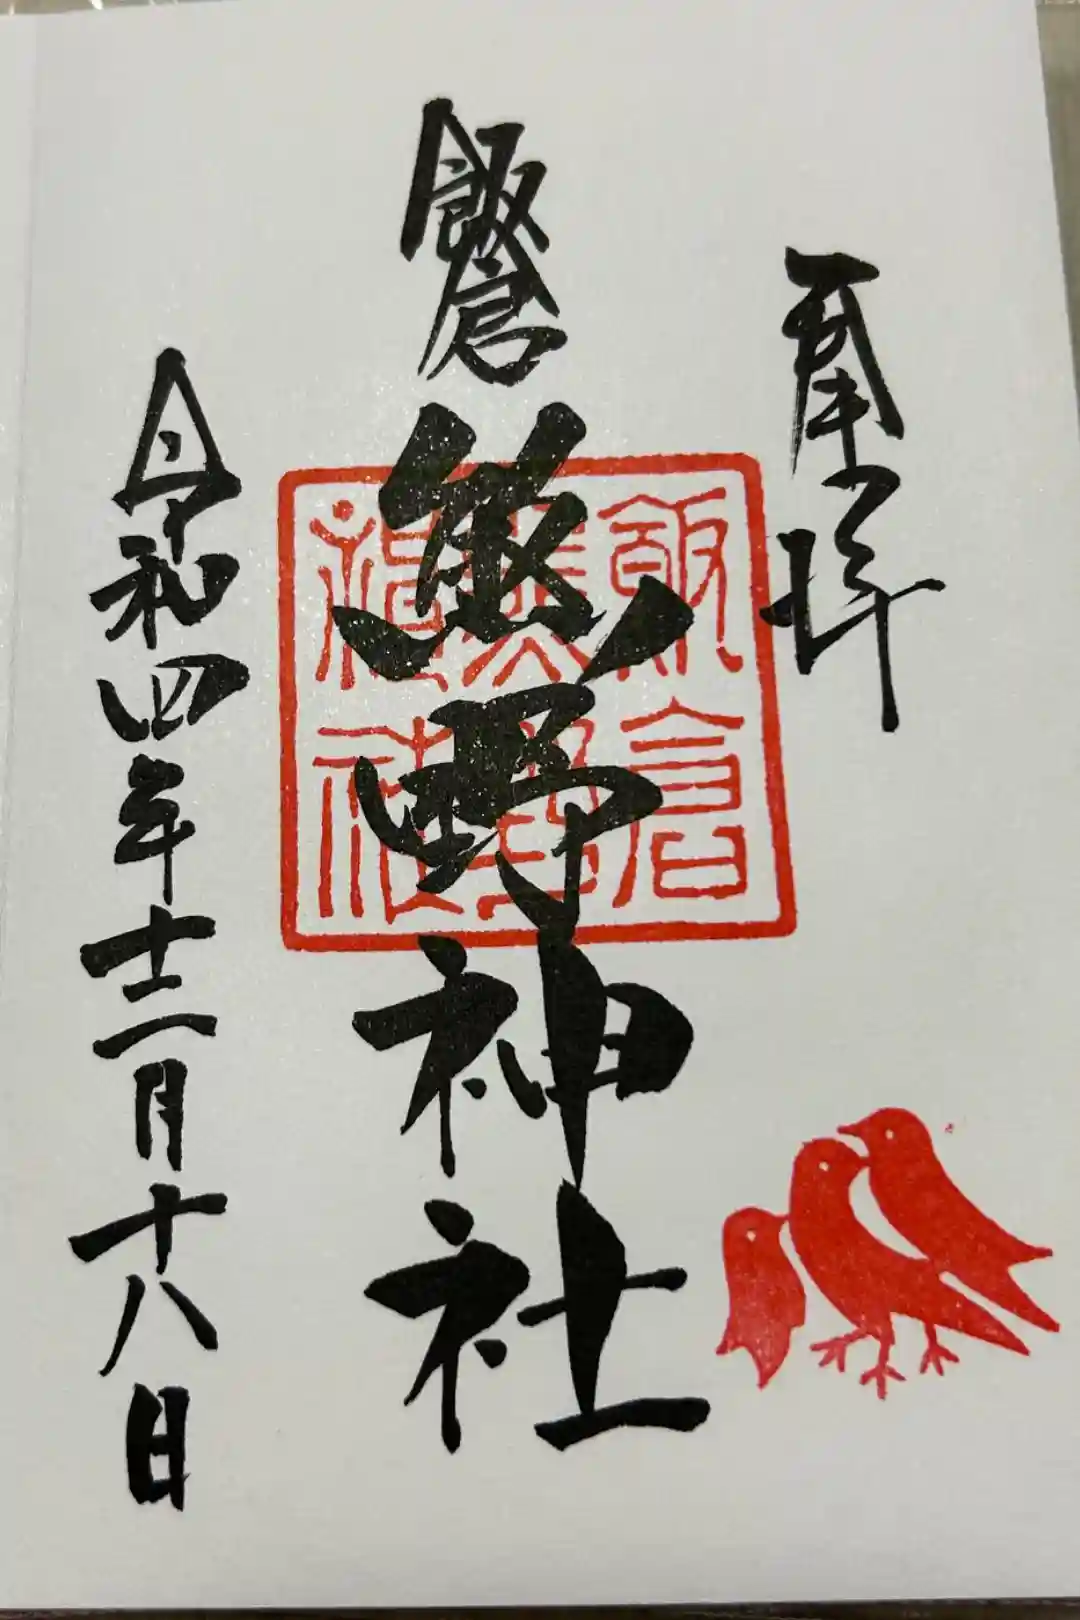 奉拝
飯倉
熊野神社
令和四年十二月十八日
飯倉
熊野
神社